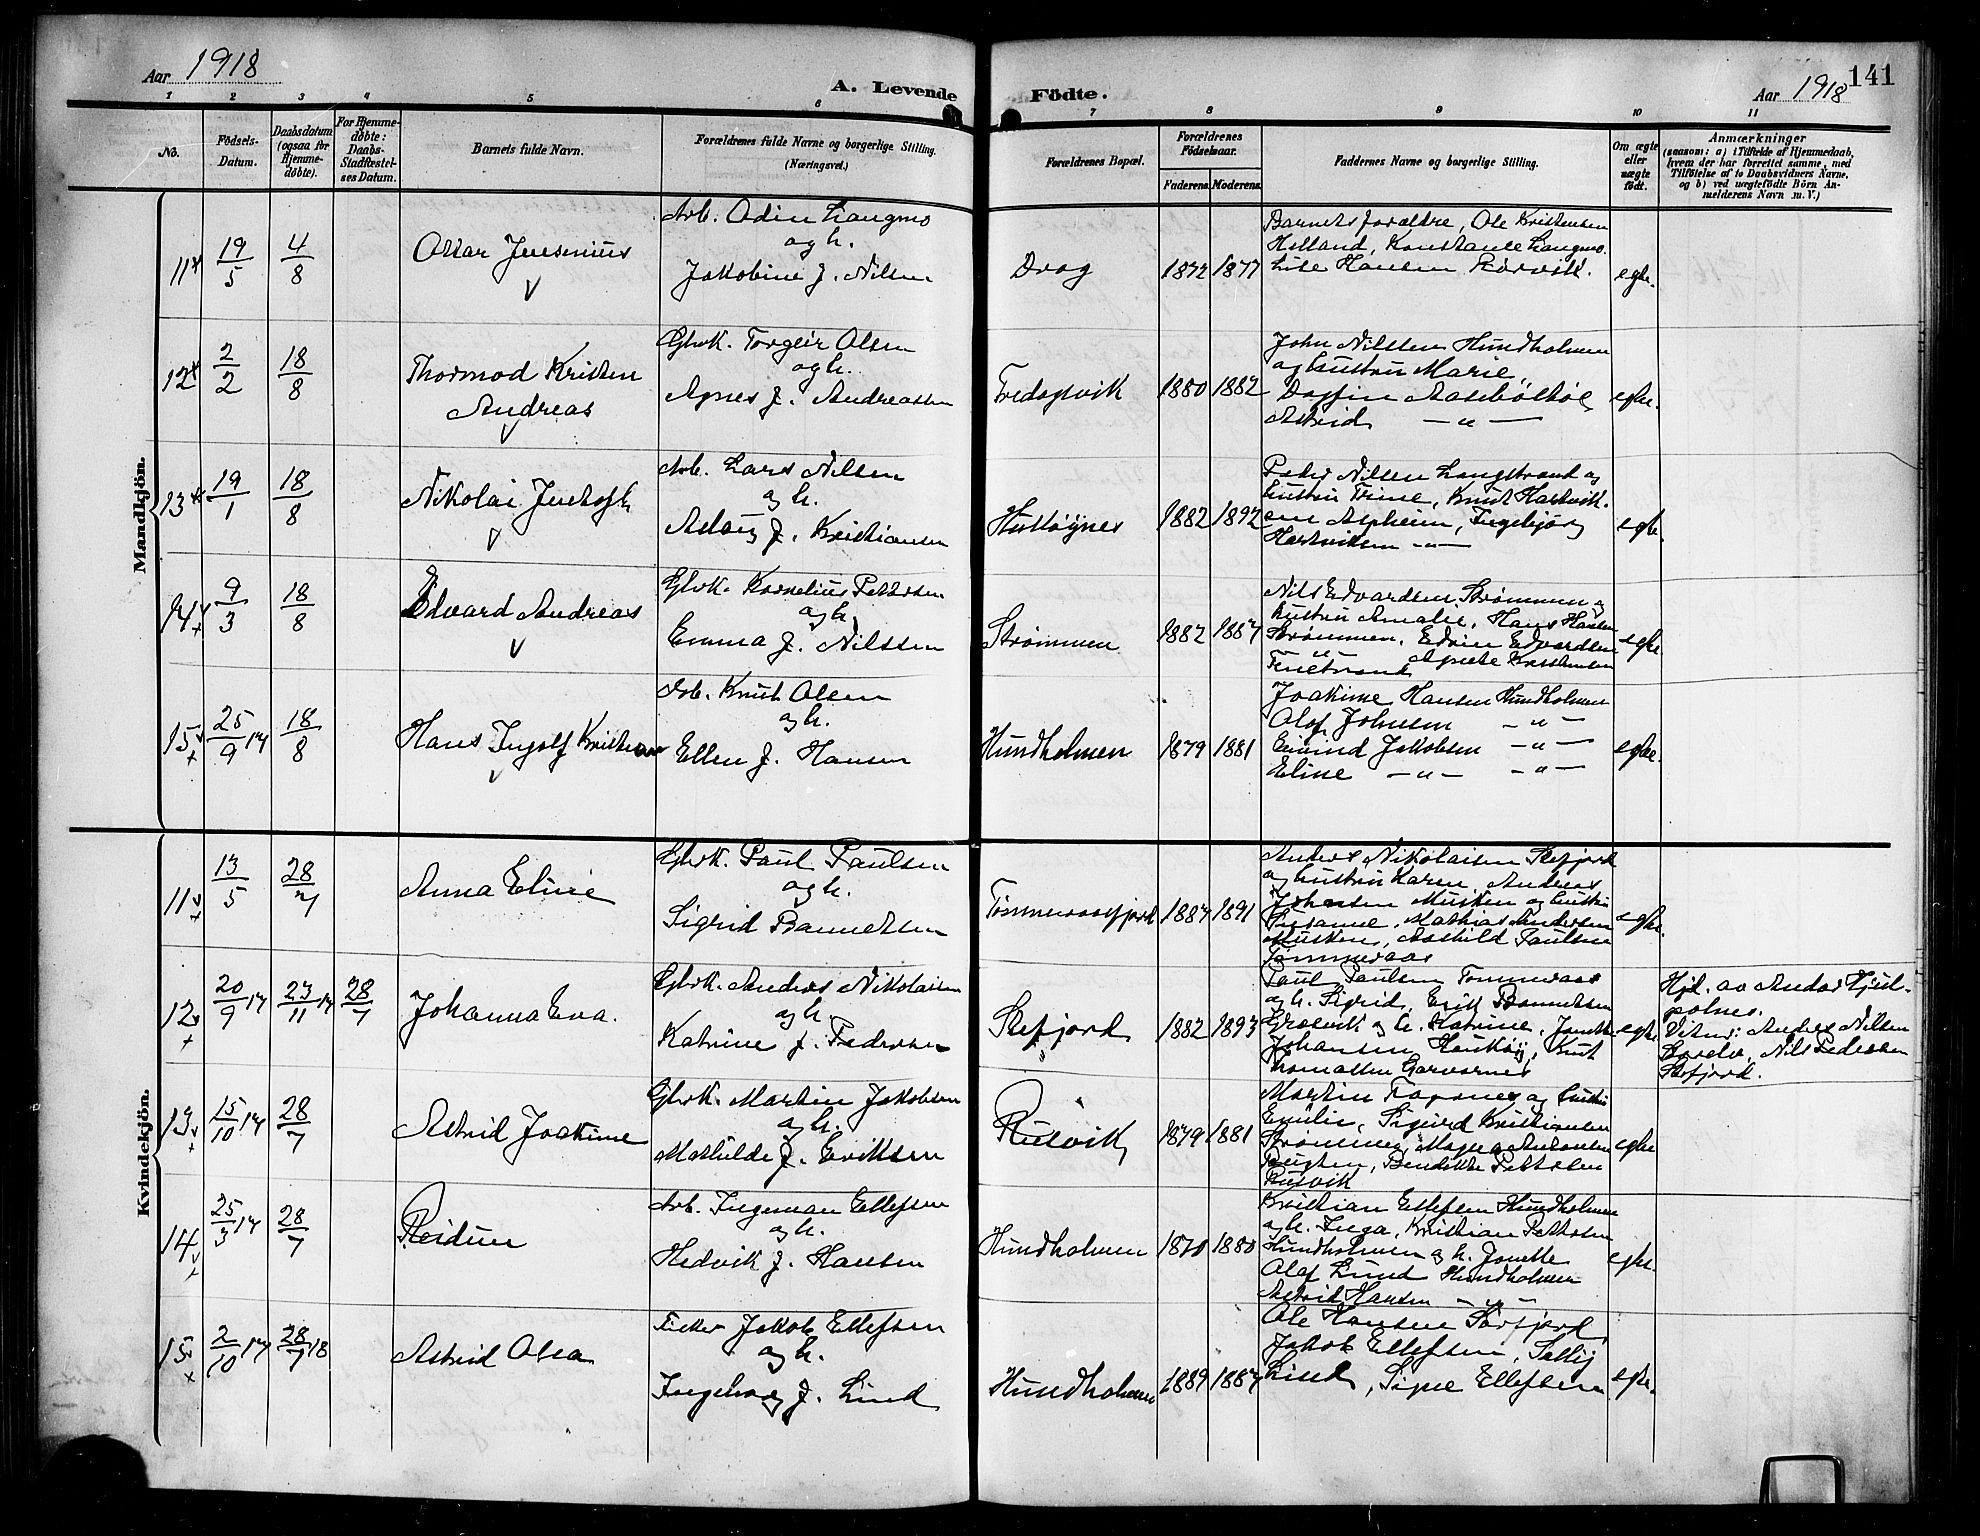 Aar 1918
A. Levende
Födte.
Aar 1918
141
1 2 3 4 5 6 7 8 9 10 11
No.
Födsels-
Datum.
Daabsdatum
(ogsaa for
Hjemme-
døbte).
For Hjemme-
døbte:
Daabs-
Stadfæstel-
ses Datum.
Barnets fulde Navn.
Forældrenes fulde Navne og borgerlige Stilling.
(Næringsvei.)
Forældrenes Bopæl.
Forældrenes
Födselsaar.
Faderens. Moderens.
Faddernes Navne og borgerlige Stilling.
Om ægte
eller
uægte
födt.
Anmærkninger
(saasom: a) i Tilfælde af Hjemmedaab,
hvem der har forrettet samme, med
Tilföielse af to Daabsvidners Navne,
og b) ved uægtefödte Börn An-
melderens Navn m. V.)
Mandkjön.
11
19/5
4/8
Ottar Jensenius
Arb. Odin Langmo
og h.
Jakobine f. Nilsen
Drag
1872 1877
Barnets forældre, Ole Kristensen
Helland, Konstanse Langmo
Lise Hansen Rørvik.
egte.
12
2/2
18/8
Thormod Kristen
Andreas
Gbrk. Torgeir Olsen
og h.
Agnes f. Andreassen
Fredagsvik
1880 1882
John Nilssen Hundholmen
og hustru Marie
Dagfin
Astrid — " —
egte.
13
19/1
18/8
Nikolai
Arb. Lars Nilsen
og h.
f. Kristiansen
1882 1892
Peder Nilsen Langstrand og
hustru Trine, Knut Hartvik-
sen Alpheim, Ingebjørg
Hartviksen — " —
egte.
14
9/3
18/8
Edvard Andreas
Gbrk. Kornelius Pettersen
og h.
Emma f. Nilssen
Strømmen
1882 1887
Nils Edvardsen Strømmen og
hustru Amalie, Hans Hansen
Strømmen, Edvin Edvardsen
Agnete Kristensen
egte.
15
25/9 17
18/8
Hans Ingolf Kristian
Arb. Knut Olsen
og h.
Ellen f. Hansen
Hundholmen
1879 1881
Joakime Hansen Hundholmen
Olaf Johnsen — " —
Eivind Jakobsen — " —
Eline — " — — " —
egte.
Kvindekjön.
11
13/5
28/7
Anna Eline
Gbrk. Paul Paulsen
og h.
Sigrid
Tømmeraasfjord
1887 1891
Anders Nikolaisen Sæfjord
og hustru Karen, Andreas
Johansen Musken og hustru
Susanne, Mathias Andersen
Musken, Aashild Paulsen
Tømmeraas
egte.
12
20/9 17
23/11 17
28/7
Johanna Eva.
Gbrk. Anders Nikolaisen
og h.
Katrine f. Pedersen
1882 1893
Paul Paulsen Tømmeraas
og h. Sigrid, Erik
Grøsvik og h. Katrine,
Johansen
egte
Hjd. av
Vitner: Anders Nilsen
Nils Pedersen
13
15/10 17
28/7
Astrid Joakime
Gbrk. Martin Jakobsen
og h.
Mathilde f. Eriksen
Rusvik
1879 1881
Martin og hustru
Emilie, Sigurd Kristiansen
Bendikte Pettersen
Rusvik
egte
14
25/3 17
28/7
Reidun
Arb. Ingeman Ellefsen
og h.
Hedvik f. Hansen
Hundholmen
1870 1880
Kristian Ellefsen Hundholmen
og h. Inga, Kristian Pettersen
Hundholmen og h. Jonette
Olaf Lund Hundholmen
Astrid Hansen — " —
egte.
15
2/10 17
28/7 18
Astrid Olea
Fisker Jakob Ellefsen
og h.
Ingeborg f. Lind
Hundholmen
1889 1887
Ole Hansen Sørfjord,
Jakob Ellefsen,
Lind, Signe Ellefsen
egte.